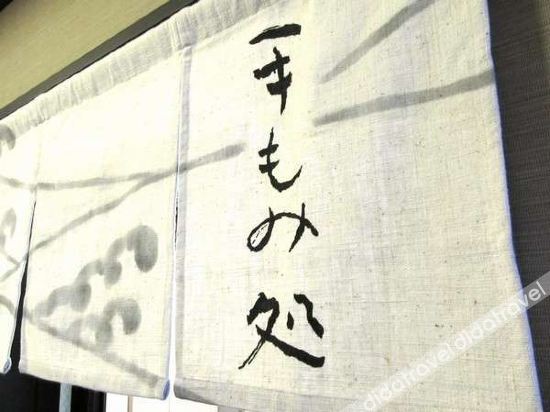 手もみ処
didatravel didatravel